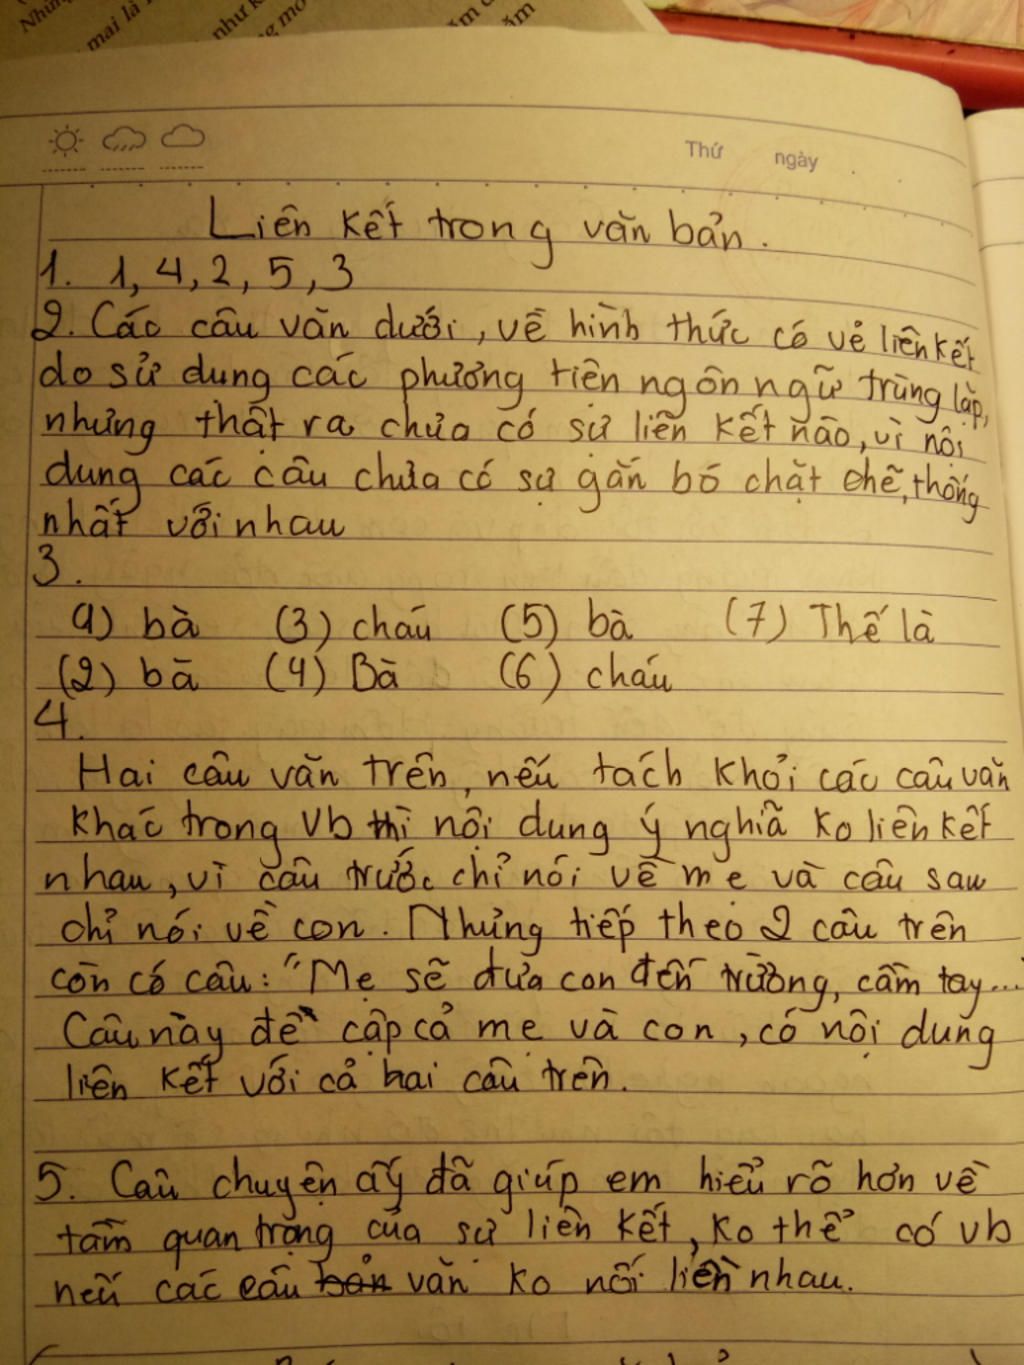 mai là
như
Thứ ngày
Liên kết trong văn bản.
1. 1, 4, 2, 5, 3
2. Các câu văn dưới, về hình thức có vẻ liên kết
do sử dụng các phương tiện ngôn ngữ trùng lặp,
nhưng thật ra chưa có sự liên kết nào, vì nội
dung các câu chưa có sự gắn bó chặt chẽ, thống
nhất với nhau
3.
1) bà (3) cháu (5) bà (7) Thế là
(2) bà (4) Bà (6) cháu
4.
Hai câu văn trên, nếu tách khỏi các câu văn
khác trong vb thì nội dung ý nghĩa ko liên kết
nhau, vì câu trước chỉ nói về mẹ và câu sau
chỉ nói về con. Nhưng tiếp theo 2 câu trên
còn có câu: "Mẹ sẽ đưa con đến trường, cầm tay..."
Câu này đề cập cả mẹ và con, có nội dung
liên kết với cả hai câu trên.
5. Câu chuyện ấy đã giúp em hiểu rõ hơn về
tầm quan trọng của sự liên kết, ko thể có vb
nếu các câu văn ko nối liền nhau.